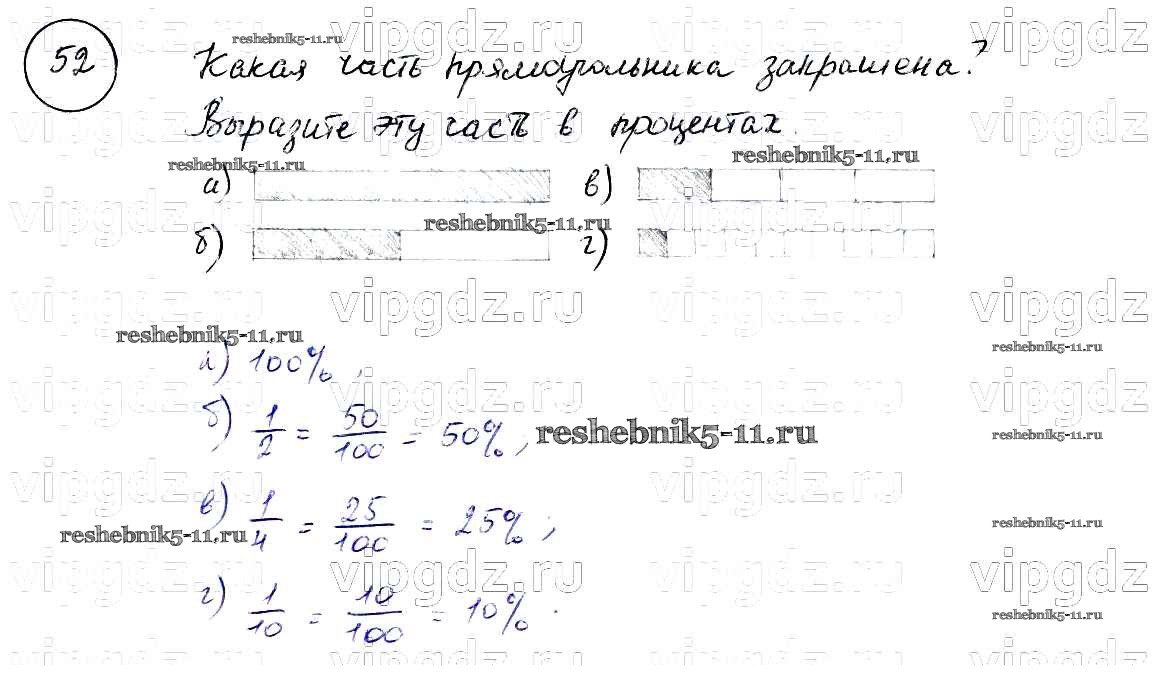 vipgdz.ru vipgdz.ru vipgdz.ru vipgdz
reshebnik5-11.ru
52 Какая часть прямоугольника закрашена?
vipgdz.ru vipgdz.ru vipgdz.ru vipgdz
Выразите эту часть в процентах.
reshebnik5-11.ru reshebnik5-11.ru
а) в)
vipgdz.ru vipgdz.ru vipgdz.ru vipgdz
reshebnik5-11.ru
б) г)
vipgdz.ru vipgdz.ru vipgdz.ru vipgdz
reshebnik5-11.ru reshebnik5-11.ru
а) 100%,
vipgdz.ru vipgdz.ru vipgdz.ru vipgdz
б) 1/2 = 50/100 = 50%, reshebnik5-11.ru reshebnik5-11.ru
vipgdz.ru vipgdz.ru vipgdz.ru vipgdz
в) 1/4 = 25/100 = 25%;
reshebnik5-11.ru reshebnik5-11.ru
vipgdz.ru vipgdz.ru vipgdz.ru vipgdz
г) 1/10 = 10/100 = 10%.
reshebnik5-11.ru
vipgdz.ru vipgdz.ru vipgdz.ru vipgdz